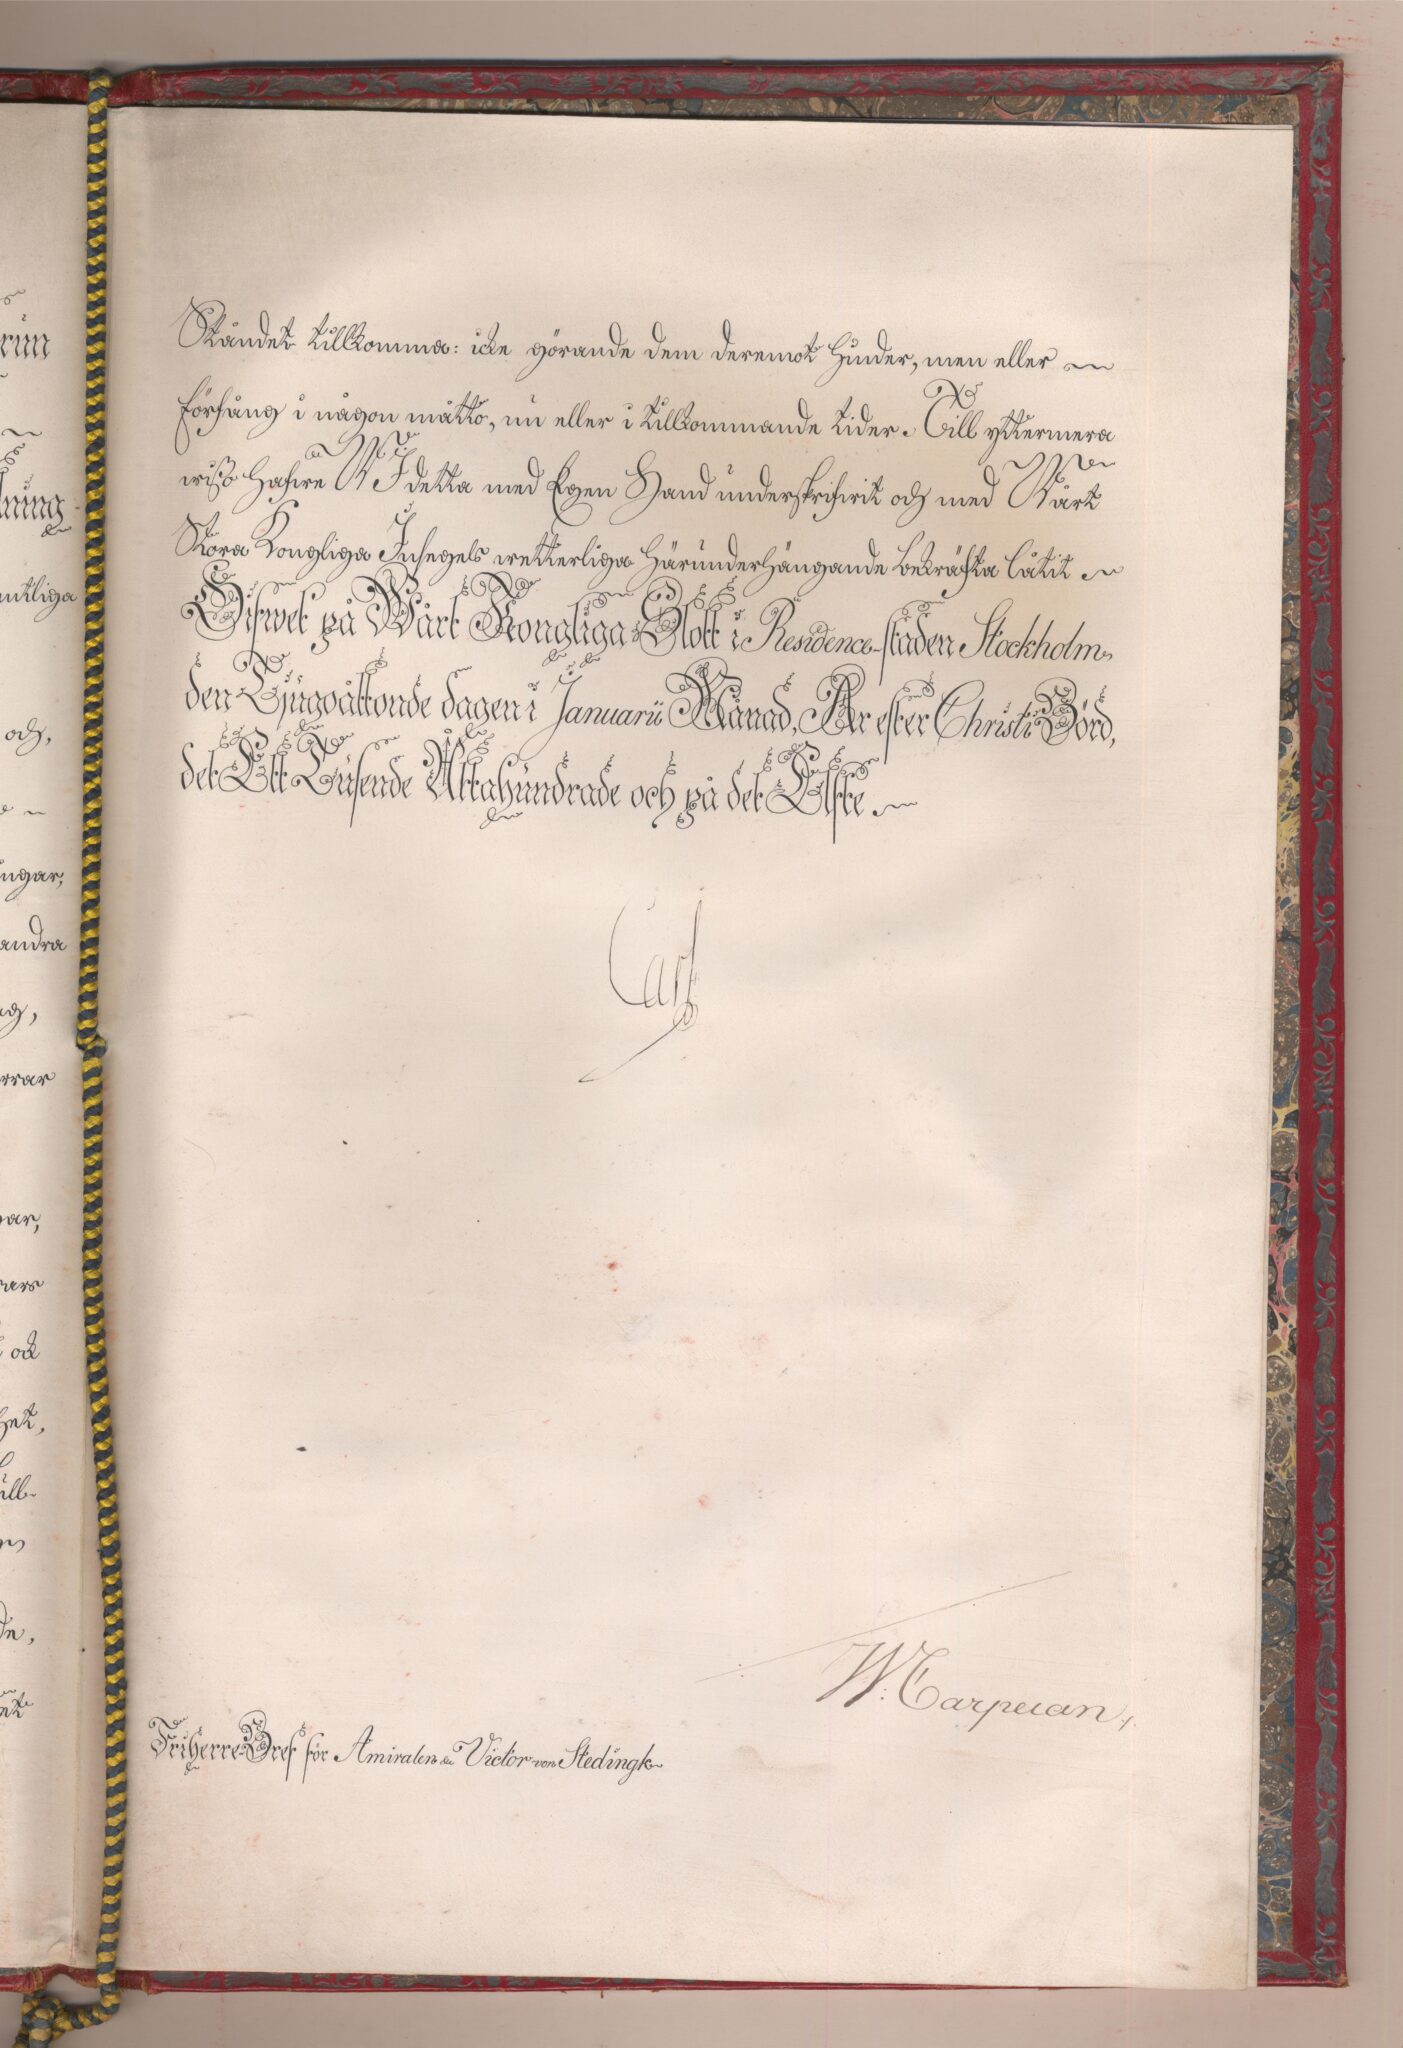 Ståndet tillkomma: icke görande dem deremot hinder, men eller
förfång i någon måtto, nu eller i tillkommande tider. Till yttermera
wiszo hafwe WJ detta med Egen Hand underskrifwit och med Wårt
Stora Kongliga Insegels wetterliga härunderhängande bekräfta låtit
Gifwet på Wårt Kongliga Slott i Residence-staden Stockholm
den Tjugoåttonde dagen i Januarii Månad, År efter Christi Börd,
det Ett Tusende Åttahundrade och på det Elfte.
Carl
W: Carpelan
Friherre-Bref för Amiralen Victor von Stedingk
run
ning
mtliga
och,
ngar,
andra
rrar
var,
ock
het,
ill-
de,